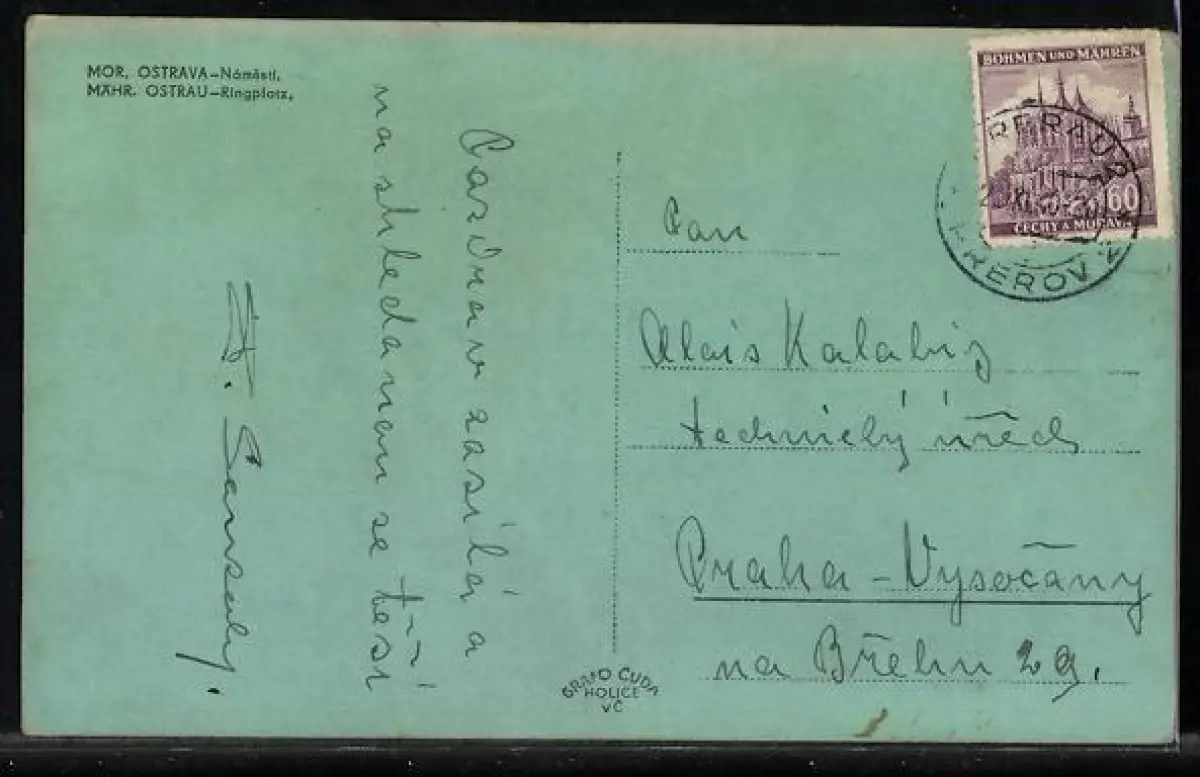 MOR. OSTRAVA-Náměstí.
MÄHR. OSTRAU-Ringplatz.
Pozdrav zasílá a
na shledanou se těší
BÖHMEN UND MÄHREN
60
ČECHY A MORAVA
PRERAU 2
PŘEROV 2
Pan
Alois Kalabis
technický úřed
Praha - Vysočany
na Břehu 29.
GRAFO ČUDA
HOLICE
VČ